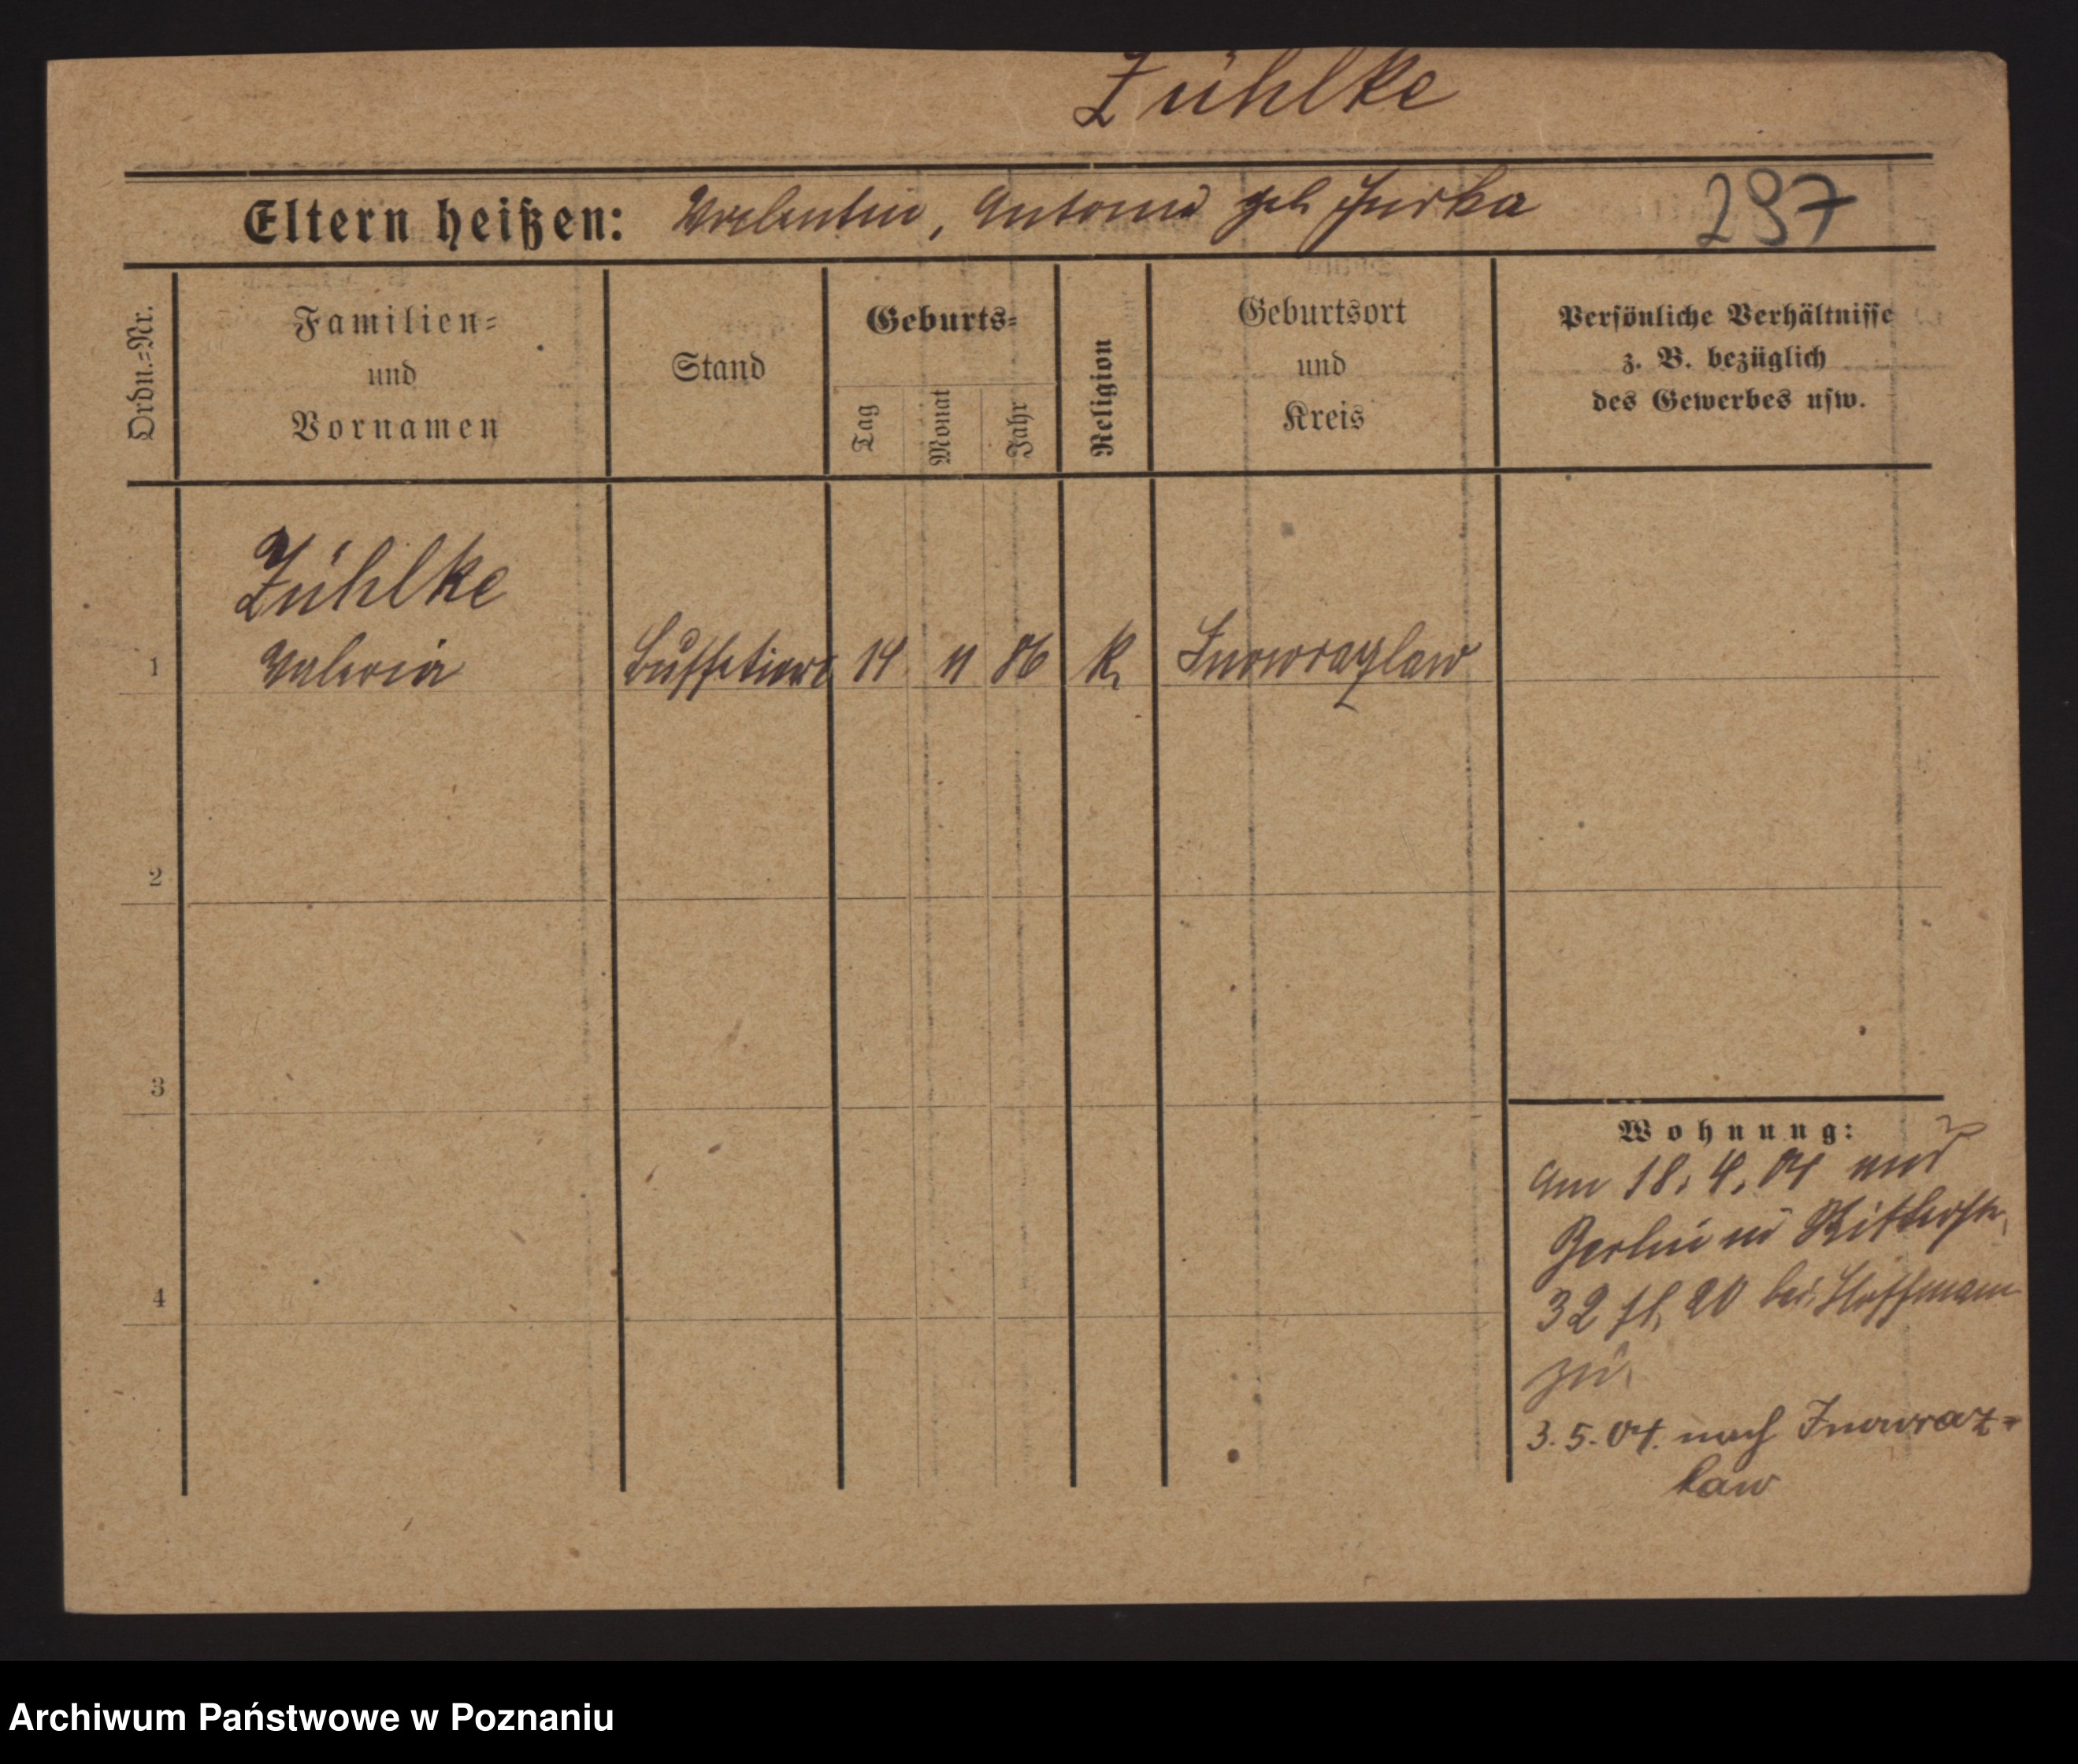 Zühlke
Eltern heißen: Valentin, Antonie geb Jurka 297
Ordn.=Nr.
Familien=
und
Vornamen
Stand
Geburts=
Tag
Monat
Jahr
Religion
Geburtsort
und
Kreis
Persönliche Verhältnisse
z. B. bezüglich
des Gewerbes usw.
Zühlke
1 Valeria Buffetiere 14 11 86 k. Inowrazlaw
2
3
4
Wohnung:
Am 18. 4. 04 aus
Berlin in Ritterstr.
32 II. 20 bei Hoffmann
zu.
3. 5. 04. nach Inowraz=
law
Archiwum Państwowe w Poznaniu